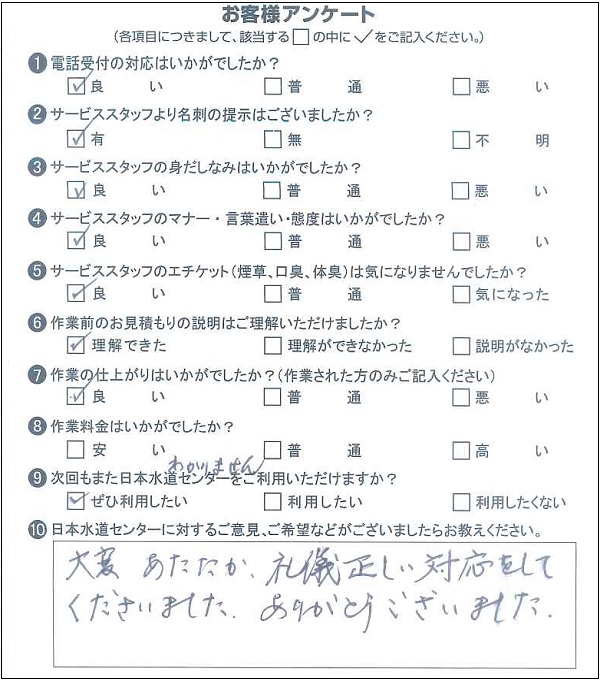 お客様アンケート
(各項目につきまして、該当する□の中に✓をご記入ください。)
❶電話受付の対応はいかがでしたか？
☑良い □普通 □悪い
❷サービススタッフより名刺の提示はございましたか？
☑有 □無 □不明
❸サービススタッフの身だしなみはいかがでしたか？
☑良い □普通 □悪い
❹サービススタッフのマナー・言葉遣い・態度はいかがでしたか？
☑良い □普通 □悪い
❺サービススタッフのエチケット(煙草、口臭、体臭)は気になりませんでしたか？
☑良い □普通 □気になった
❻作業前のお見積もりの説明はご理解いただけましたか？
☑理解できた □理解ができなかった □説明がなかった
❼作業の仕上がりはいかがでしたか？(作業された方のみご記入ください)
☑良い □普通 □悪い
❽作業料金はいかがでしたか？
□安い □普通 □高い
わかりません
❾次回もまた日本水道センターをご利用いただけますか？
☑ぜひ利用したい □利用したい □利用したくない
❿日本水道センターに対するご意見、ご希望などがございましたらお教えください。
大変 あたたか、礼儀正しい対応をして
くださいました. ありがとうございました.